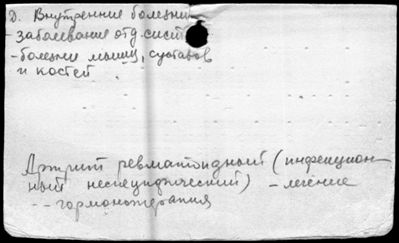 Д. Внутренние болезни
- заболевания отд. систем
- болезни мышц, суставов
и костей
Артрит ревматоидный (инфекцион-
ный неспецифический) - лечение
-- гормонотерапия